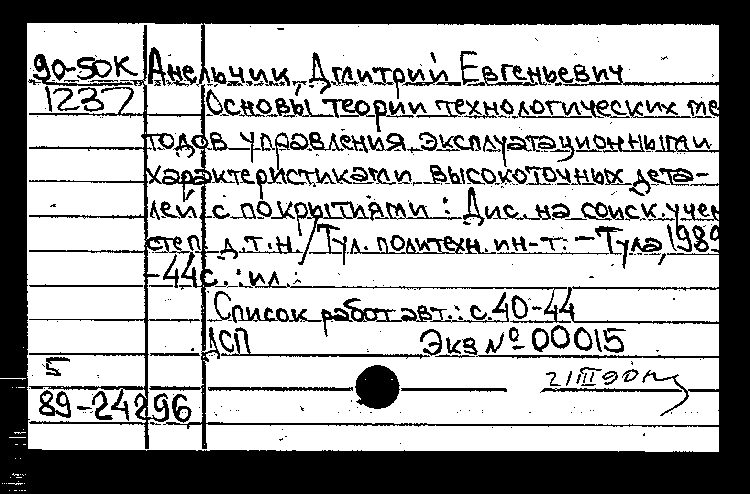 90-50К Анельчик, Дмитрий Евгеньевич
1237 Основы теории технологических ме
тодов управления эксплуатационными
характеристиками высокоточных дета-
лей с покрытиями : Дис. на соиск. учен
степ д.т.н. / Тул. политехн. ин-т. - Тула, 1989
-44с. : ил.
Список работ авт.: с.40-44
ДСП Экз № 00015
5
21 III 90
89-24296